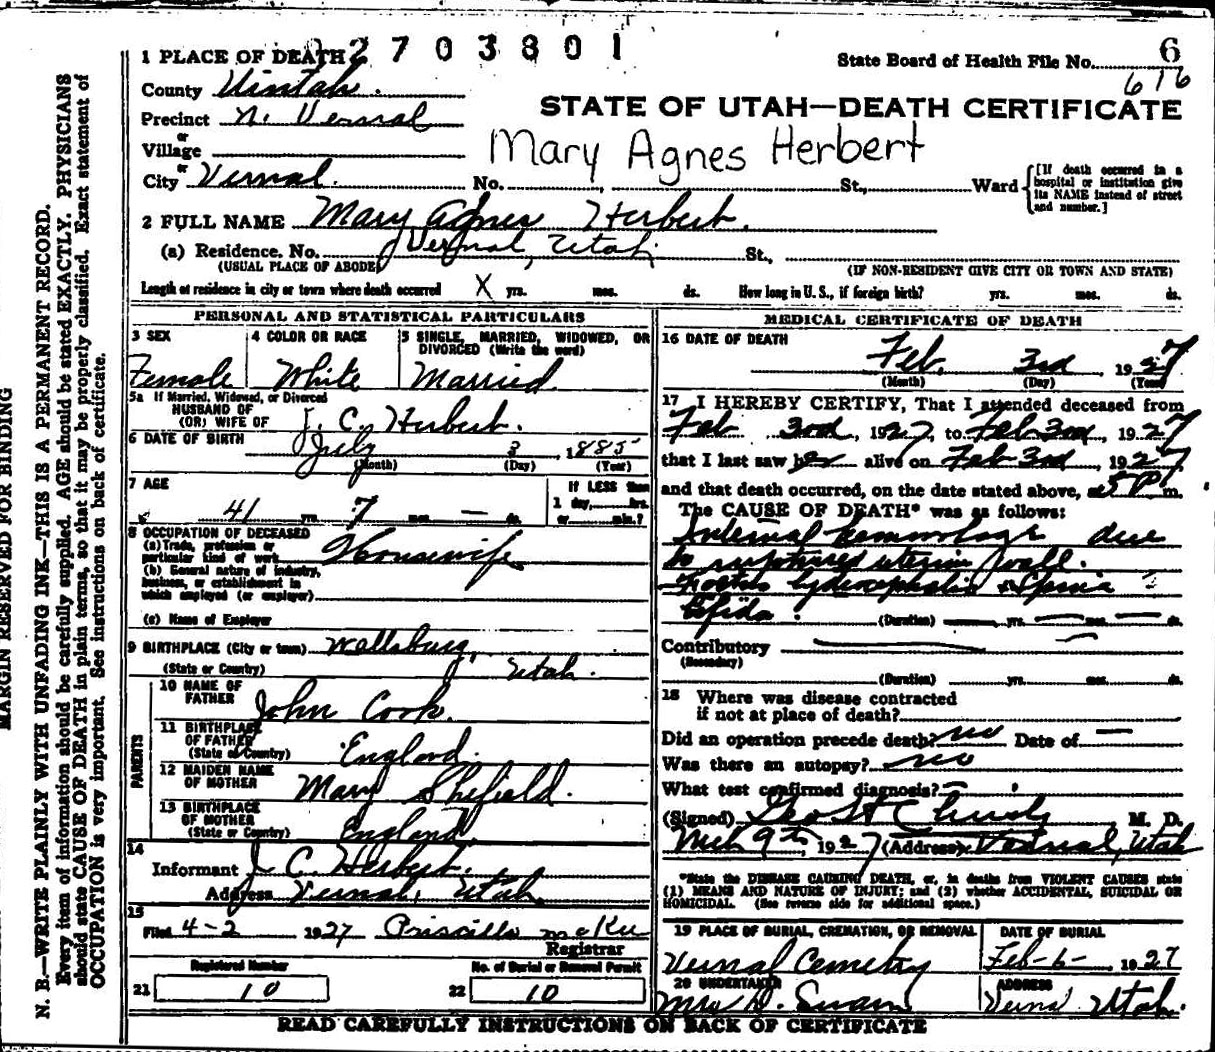 2703801
1 PLACE OF DEATH
State Board of Health File No. 6
616
County Uintah.
STATE OF UTAH—DEATH CERTIFICATE
Precinct N. Vernal
or
Village
Mary Agnes Herbert
City or Vernal. No. , St., Ward
[If death occurred in a hospital or institution give its NAME instead of street and number.]
2 FULL NAME Mary Agnes Herbert.
(a) Residence. No. Vernal, Utah St.,
(USUAL PLACE OF ABODE) (IF NON-RESIDENT GIVE CITY OR TOWN AND STATE)
Length of residence in city or town where death occurred X yrs. mos. ds. How long in U. S., if foreign birth? yrs. mos. ds.
PERSONAL AND STATISTICAL PARTICULARS
3 SEX 4 COLOR OR RACE 5 SINGLE, MARRIED, WIDOWED, OR
DIVORCED (Write the word)
Female White Married
5a If Married, Widowed, or Divorced
HUSBAND OF
(OR) WIFE OF J. C. Herbert.
6 DATE OF BIRTH July 3, 1885
(Month) (Day) (Year)
7 AGE If LESS than
1 day, hrs.
41 yrs. 7 mos. — ds. or min.?
8 OCCUPATION OF DECEASED
(a) Trade, profession or
particular kind of work Housewife
(b) General nature of industry,
business, or establishment in
which employed (or employer)
(c) Name of Employer
9 BIRTHPLACE (City or town) Wallsburg,
(State or Country) Utah.
PARENTS
10 NAME OF
FATHER John Cook.
11 BIRTHPLACE
OF FATHER
(State or Country) England.
12 MAIDEN NAME
OF MOTHER Mary Shefield.
13 BIRTHPLACE
OF MOTHER
(State or Country) England
14
Informant J. C. Herbert.
Address Vernal, Utah.
15
Filed 4-2 1927 Priscilla McKee
Registrar
Registered Number No. of Burial or Removal Permit
21 10 22 10
MEDICAL CERTIFICATE OF DEATH
16 DATE OF DEATH
Feb. 3rd 1927
(Month) (Day) (Year)
17 I HEREBY CERTIFY, That I attended deceased from
Feb 3rd, 1927, to Feb 3rd, 1927
that I last saw her alive on Feb 3rd, 1927
and that death occurred, on the date stated above, at 5 P m.
The CAUSE OF DEATH* was as follows:
Internal hemmorhage due
to ruptured uterine wall.
Foetus hydrocephalic & Spina
Bifida.
(Duration) yrs. mos. ds.
Contributory
(Secondary)
(Duration) yrs. mos. ds.
18 Where was disease contracted
if not at place of death?
Did an operation precede death? no Date of —
Was there an autopsy? no
What test confirmed diagnosis? —
(Signed) Geo H Christy M. D.
Mch 9th, 1927 (Address) Vernal, Utah
*State the DISEASE CAUSING DEATH, or, in deaths from VIOLENT CAUSES state
(1) MEANS AND NATURE OF INJURY; and (2) whether ACCIDENTAL, SUICIDAL OR
HOMICIDAL. (See reverse side for additional space.)
19 PLACE OF BURIAL, CREMATION, OR REMOVAL DATE OF BURIAL
Vernal Cemetery Feb-6- 1927
20 UNDERTAKER ADDRESS
Mrs D. Swain Vernal Utah.
READ CAREFULLY INSTRUCTIONS ON BACK OF CERTIFICATE
MARGIN RESERVED FOR BINDING
N. B.—WRITE PLAINLY WITH UNFADING INK—THIS IS A PERMANENT RECORD.
Every item of information should be carefully supplied. AGE should be stated EXACTLY. PHYSICIANS
should state CAUSE OF DEATH in plain terms, so that it may be properly classified. Exact statement of
OCCUPATION is very important. See instructions on back of certificate.